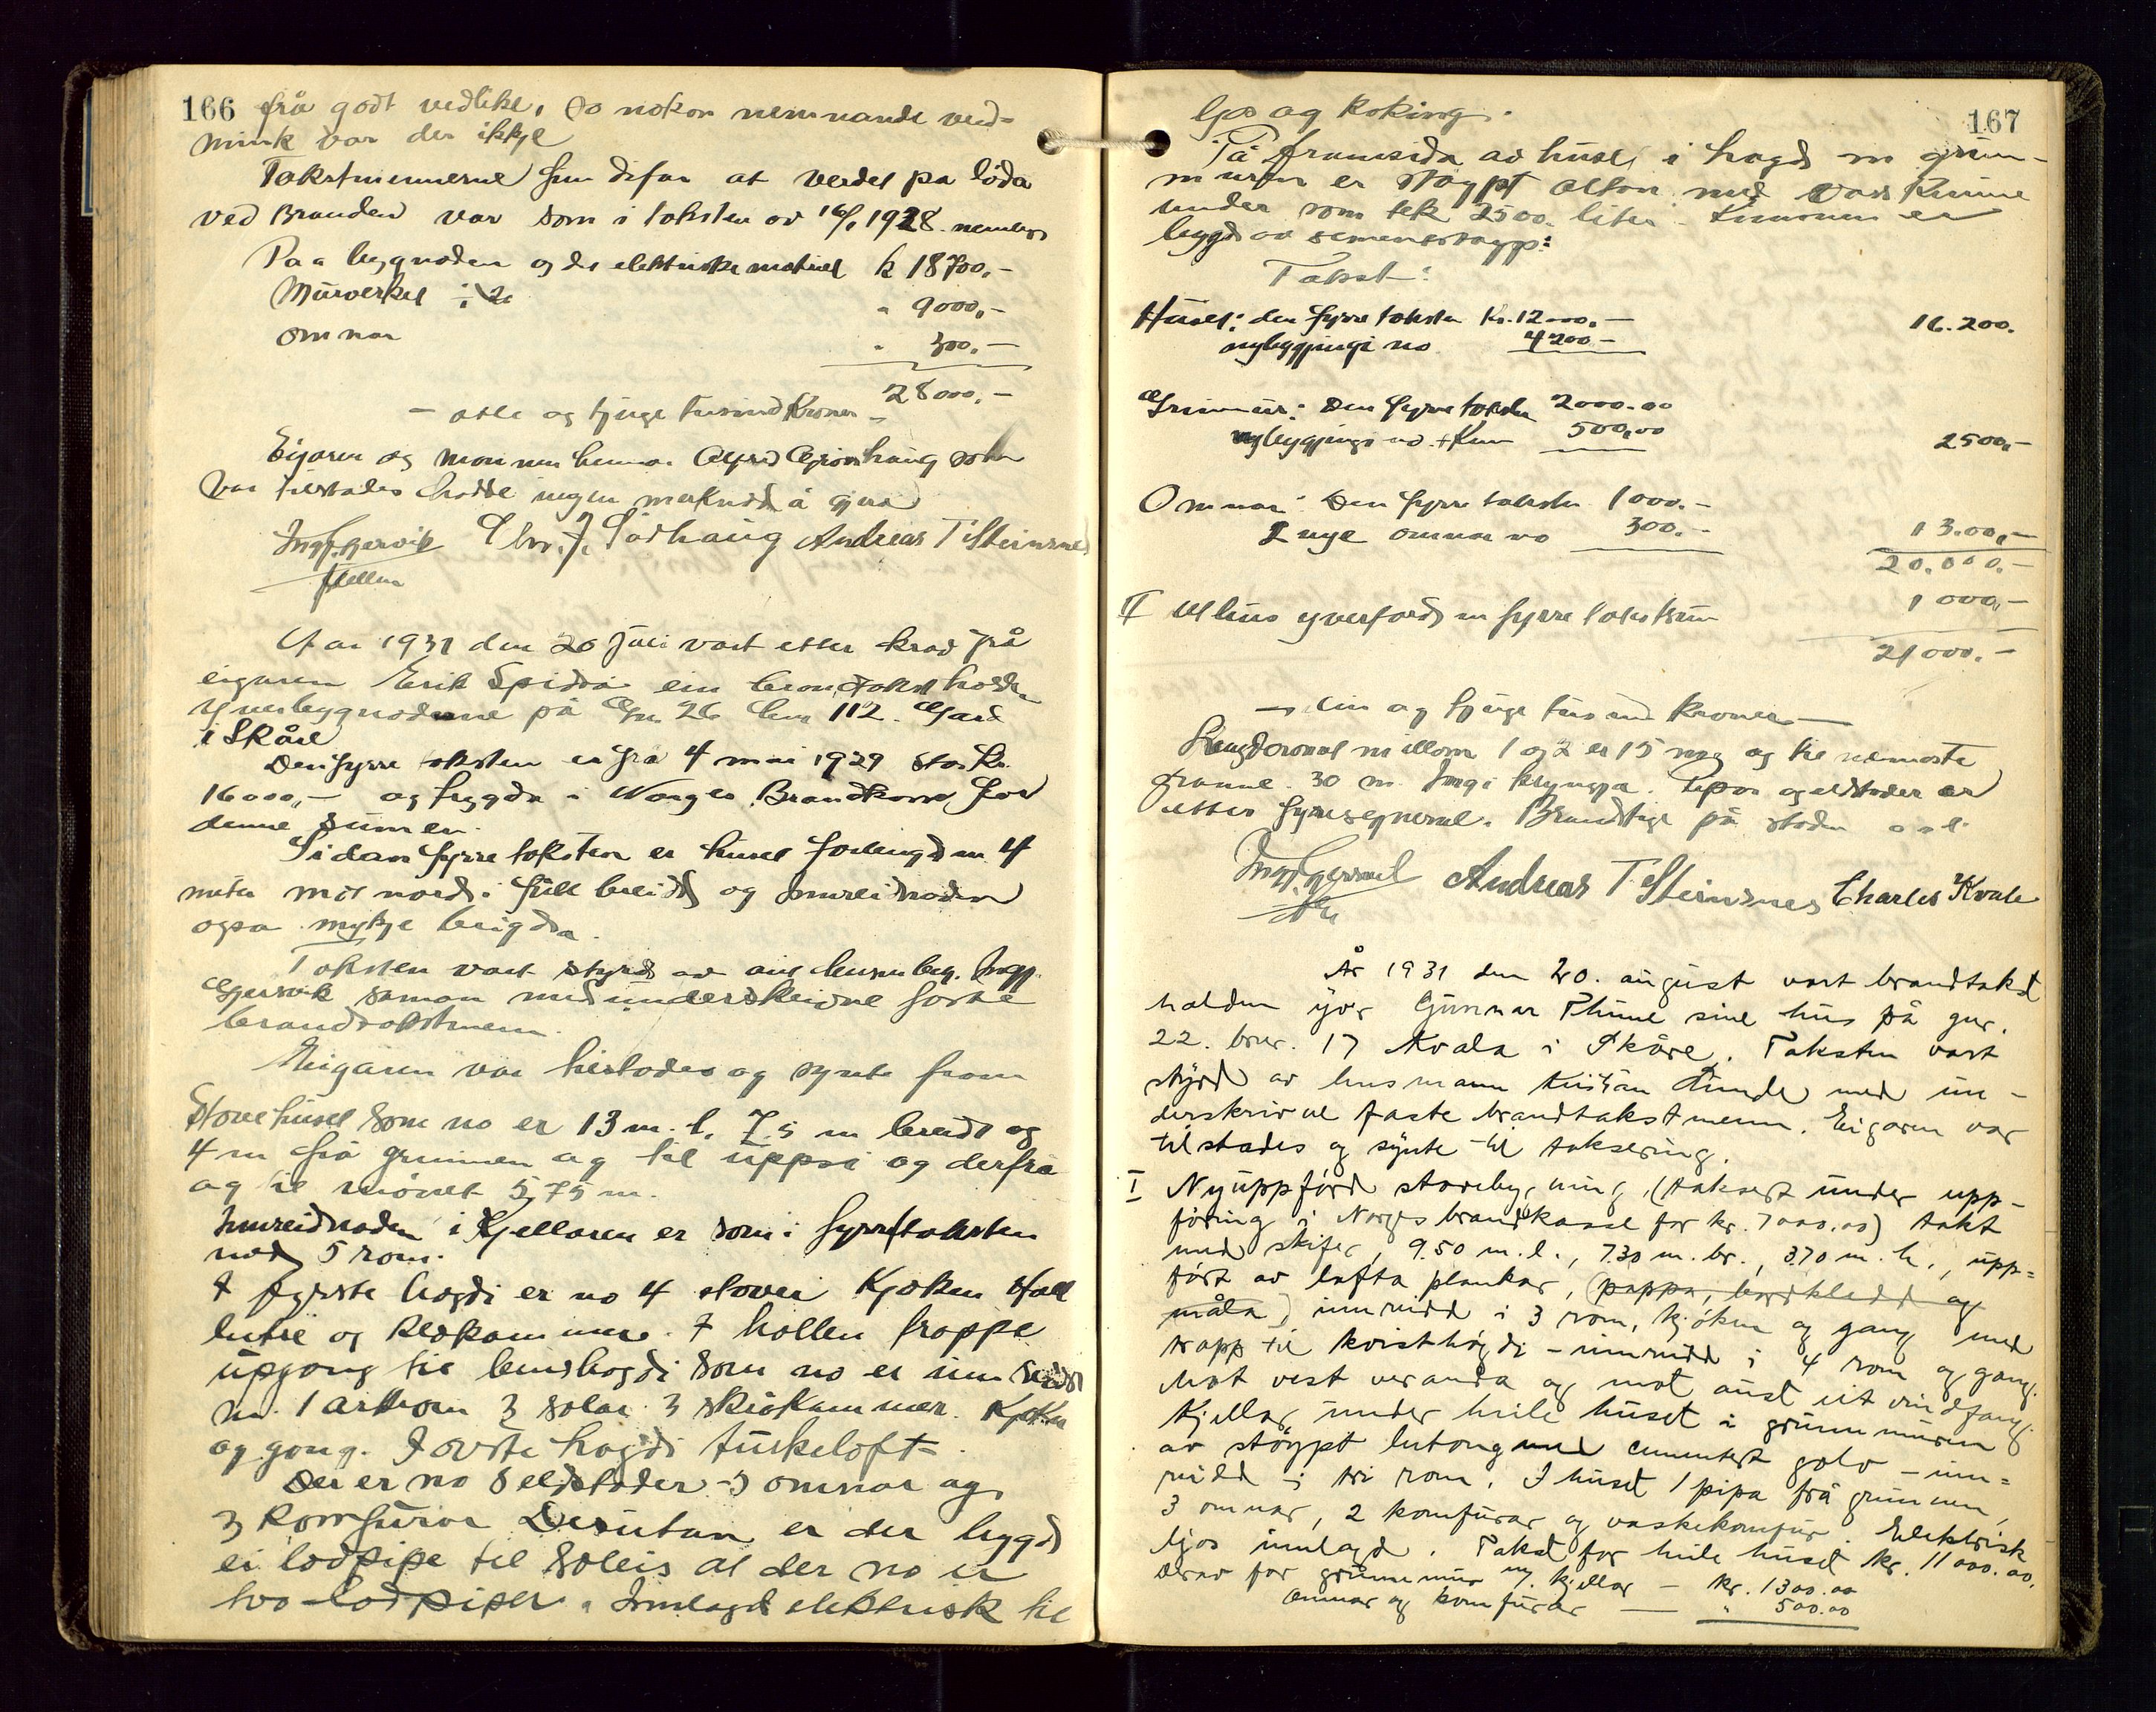 166 frå godt vedlike, So nokon nemnande verd=
mink var der ikkje
Takstmennerne fun difor at verdet på löda
ved Branden var som i taksten av 16/1 1928. nemleg
Paa bygnaden og de elektriske k 18700.-
Murverket " 9000,-
omnar " 300.-
28000.-
- otte og tjuge tusind Kroner -
Eigaren og mannen hennar
var tilstades hadde ingen merknad å gjera
Ingv. Gjervik Chr. J. Sørhaug Andreas T Steinsnes
År 1931 den 20 juli vart etter krav frå
eigaren Erik Spidsö ein brandtakst halden
yver bygnaderne på Gnr 26 bnr 112. Gard
i Skåre
Den fyrre taksten er frå 4 mai 1929 stor kr.
16000,- og trygda i Norges Brandkasse for
denne sumen.
Sidan fyrre taksten er huset forlengd m 4
meter mot nord i full breidd og innreidnaden
ogsa mykje brigda.
Taksten vart styrd av Ingv.
Gjervik saman med underskrivne faste
brandtakstmenn.
Eigaren var tilstades og synte fram
Stovehuset som no er 13 m. l. 7.5 m breidt og
4 m frå grunnen og til uppsi og derfra
og til mönet 5,75 m.
Innreidnaden i Kjellaren er som i fyrretaksten
med 5 rom.
I fyrste hogdi er no 4 stover Kjöken Hall
entre og Kledkammers. I hallen trappe
upgang til höghdi som no er innreidd
m. 1 arkrom 3 solar 3 skråkammer. Kjöken
og gong. I övste hogdi turkeloft.
Der er no 8 eldstader 5 omnar og
3 Komfurar Desutan er der bygd
ei lodpipe til soleis at der no er
tvo lodpiper. Innlagd elektrisk til
167
ljos og koking.
På framsida av huset i hogd m grun-
muren er stöypt altan med vasskumme
under som tek 2500. liter. Kummen er
bygd av sementstöyp:
Takst:
Huset: den fyrre taksten Kr. 12000.- 16.200.
nybyggjingi no 4200-
Grunmur: Den fyrre taksten 2000.00
nybyggjingi no + Kum 500,00 2500,-
Omnar: Den fyrre taksten 1000.-
2 nye omnar no 300.- 1300,-
20.000.-
II Uthus yverförd m fyrre takstsum 1000,-
21000.-
- ein og tjuge tusund kroner -
Lengderomet millom 1 og 2 er 15 m og til nemaste
granne 30 m. Ingi kryngja. Pipor og eldstader er
etter fyresegnerne. Brandstige på staden
Ingv. Gjervik Andreas T Steinsnes Charles Kvale
År 1931 den 20. august vart brandtakst
halden yver Gunnar Thune sine hus på gnr.
22. bnr. 17 Kvala i Skåre. Taksten vart
styrd av lensmann Kristian Lunde med un-
derskrivne faste brandtakstmenn. Eigaren var
tilstades og synte til taksering.
I Nyuppförd stovebygning, (taksert under upp-
föring i Norges brandkasse for kr. 7000.00) takt
med skifer, 9.50 m. l., 7.30 m. br., 3.70 m. h., upp=
fört av lafta plankar, (pappa, bordkledd og
måla) innreidd i 3 rom, kjöken og gang med
trapp til kvisthögdi - innreidd i 4 rom og gang.
Mot vest veranda og mot aust eit vindfang.
Kjellar under heile huset i grunnmuren
av stöypt betong med cementert golv - inn=
reidd i tri rom. I huset 1 pipa frå grunnen,
3 omnar, 2 komfurar og vaskekomfur. Elektrisk
ljos innlagd. Takst for heile huset kr. 11000.00.
Derav for grunnmur m/ kjellar - kr. 1300.00
Omnar og komfurar - " 500.00